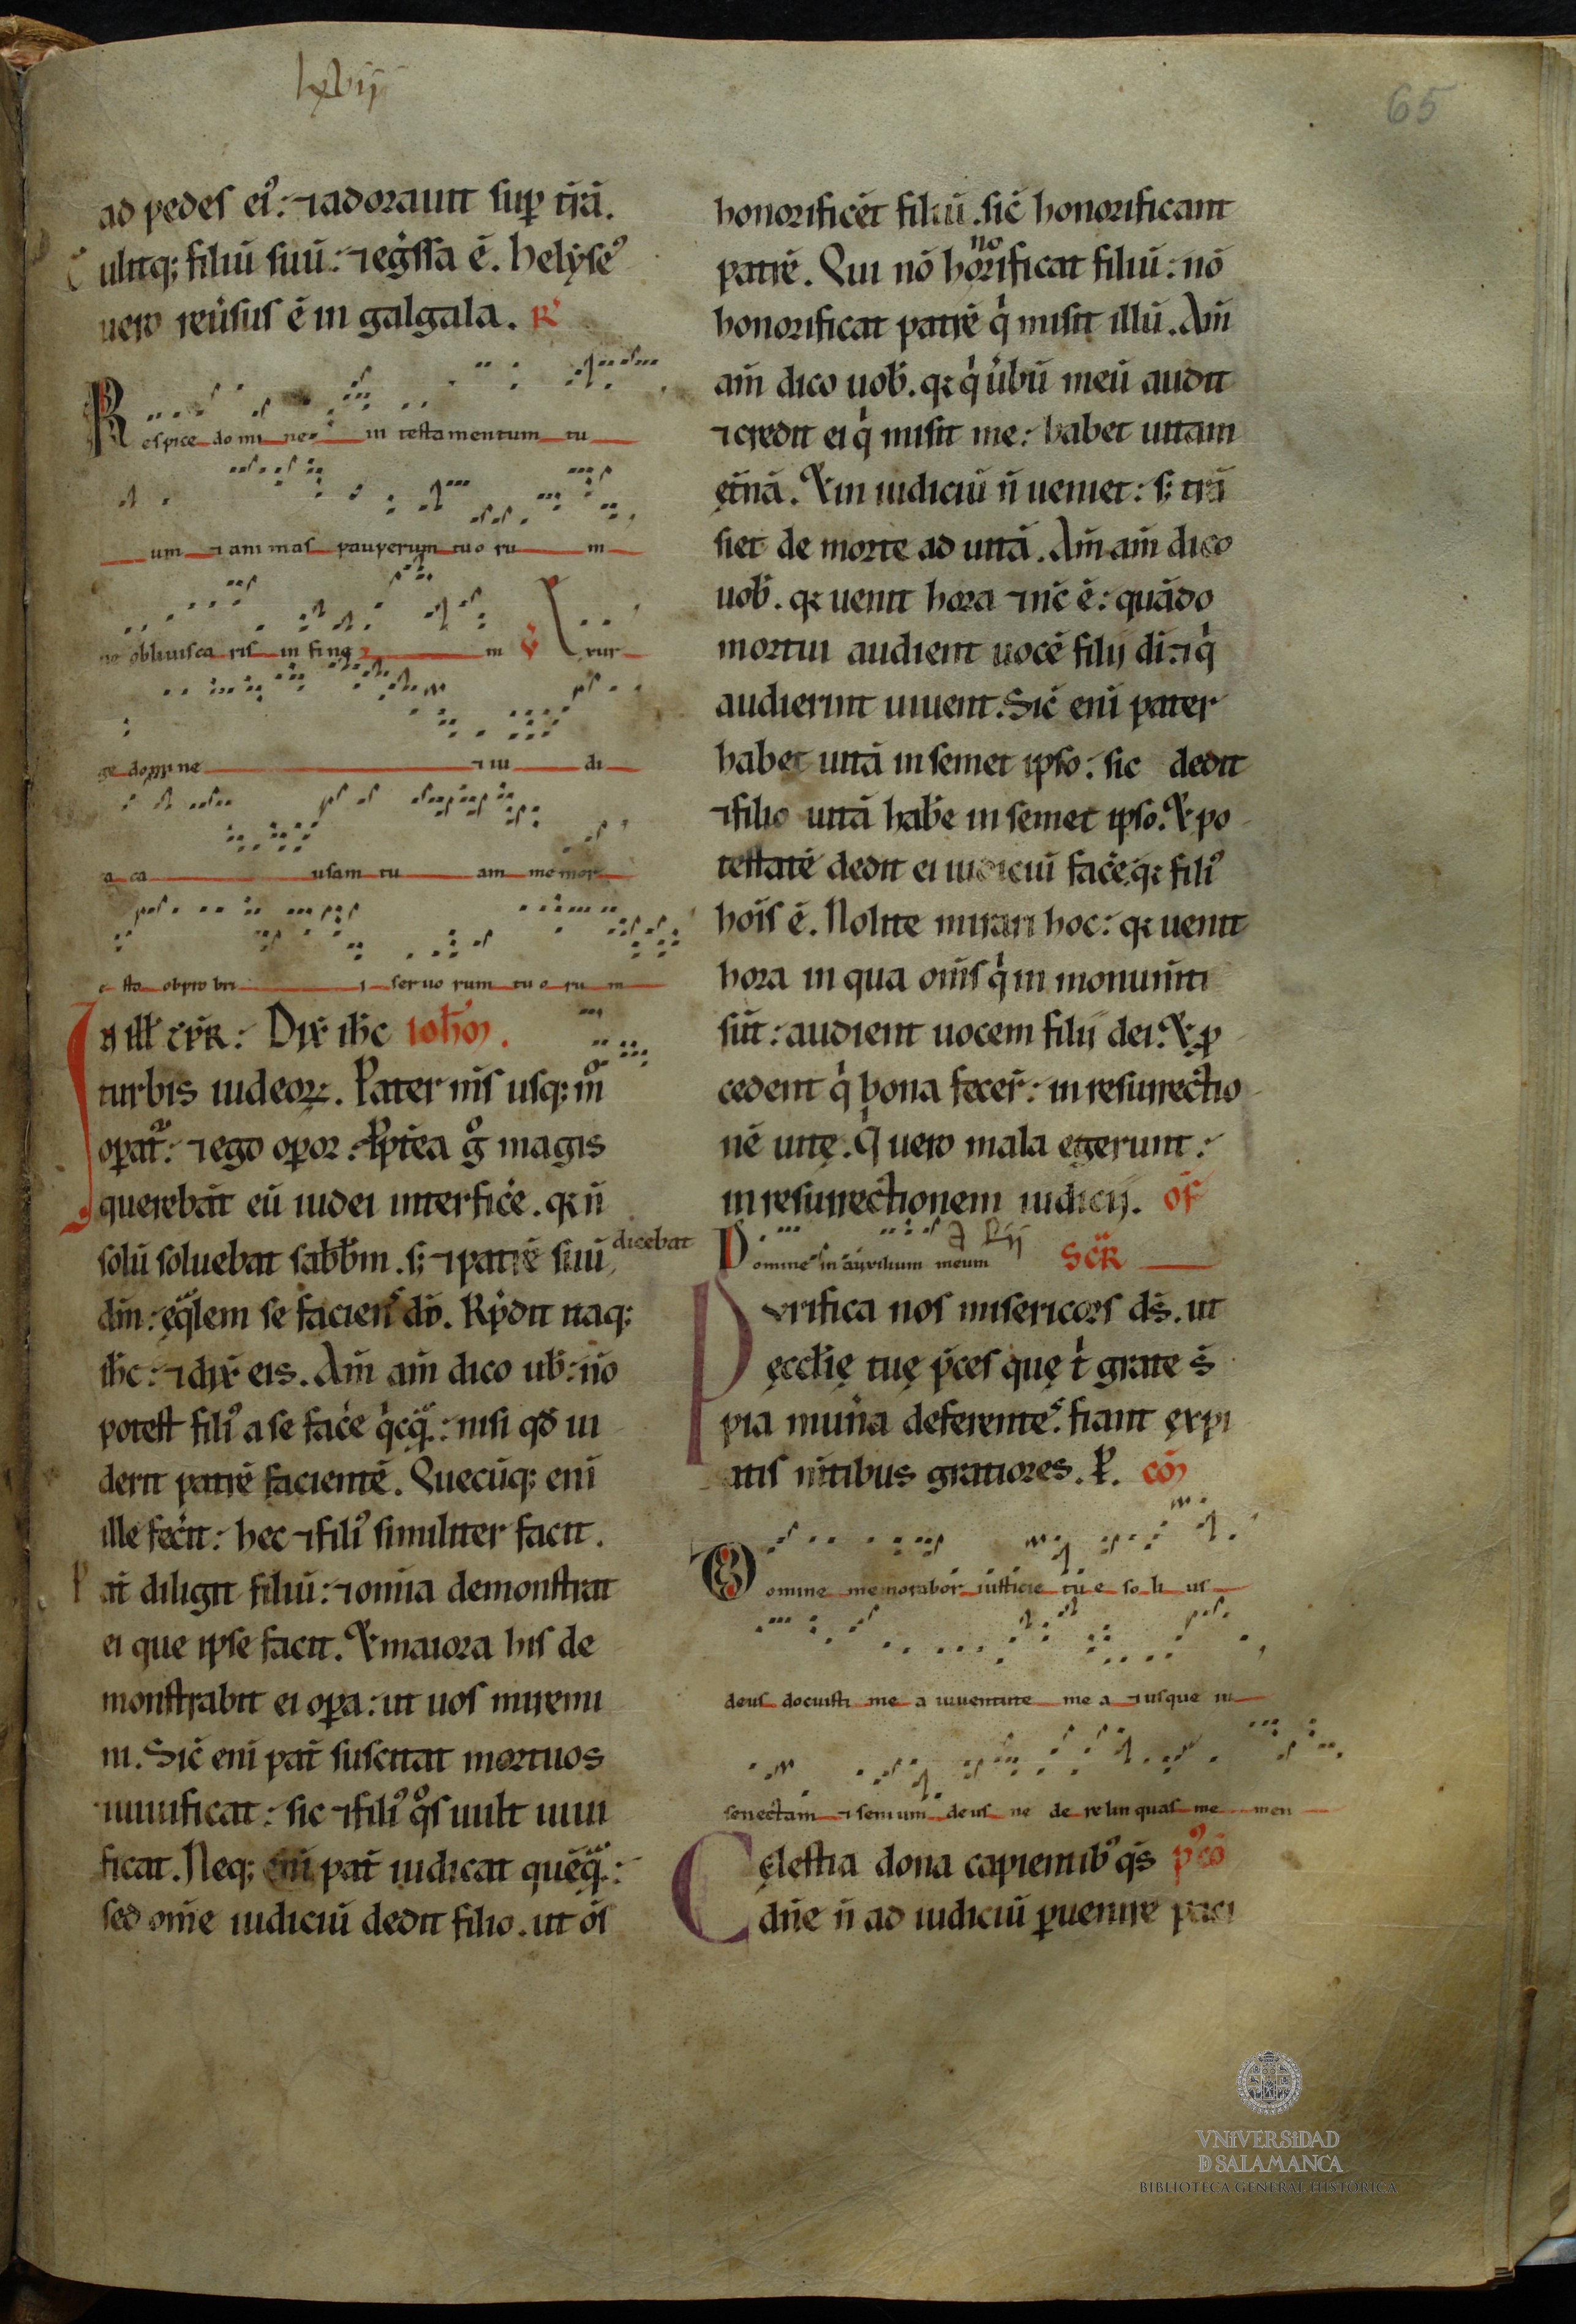 lxvij
65
ad pedes ei᾿: ⁊ adorauit sup t̄rā.
Tulitq; filiū suū: ⁊ eg̾ssa ē. helyse᾿
uero reu̾sus ē in galgala. R᾿
Respice do mi ne in testamentum tu
um ⁊ ani mas pauperum tuo ru m
ne obliuisca ris in fi ne m v̾ Exur
ge domine ⁊ iu di
a ca usam tu am memor
e sto obpro bri i seruo rum tu o ru m
In ill̄ t̄pr̄: Dix̄ ih̄c ioh̄m.
turbis iudeoꝝ. Pater m̄s usq; m̊
opat᾿: ⁊ ego opor. Ppt̄ea g̊ magis
querebāt eū iudei interfic̾e. q; n̄
solū soluebat sabb̄m. s; ⁊ patrē suū dicebat
dm̄: eq̄lem se faciens dō. Rn̄dit itaq;
ih̄c: ⁊ dix̄ eis. Am̄ am̄ dico ub̄: nō
potest fili᾿ a se fac̾e q̇cq̄: nisi qd̄ ui
derit patrē facientē. Quecūq; eni
ille fec̾it: hec ⁊ fili᾿ similiter facit.
Pat̄ diligit filiū: ⁊ omīa demonstrat
ei que ipse facit. Et maiora his de
monstrabit ei opa: ut uos miremi
ni. Sic̄ enī pat̄ suscitat mortuos
⁊ uiuificat: sic ⁊ fili᾿ q̊s uult uiui
ficat. Neq; enī pat̄ iudicat quēq̄:
sed om̄e iudiciū dedit filio. ut ōs
honorificēt filiū. sic̄ honorificant
patrē. Qui nō honorificat filiū: nō
honorificat patrē q̇ misit illū. Am̄
am̄ dico uob̄. q; q̇ u̾bū meū audit
⁊ credit ei q̇ misit me: habet uitam
et̄nā. Et in iudiciū n̄ ueniet: s; trā
siet de morte ad uitā. Am̄ am̄ dico
uob̄. q; uenit hora ⁊ nc̄ ē: quādo
mortui audient uocē filij di: ⁊ q̇
audierint uiuent. Sic̄ enī pater
habet uitā in semet ipso: sic dedit
⁊ filio uitā hab̾e in semet ipso. Et po
testatē dedit ei iudiciū fac̾e. q; fili᾿
hoīs ē. Nolite mirari hoc: q; uenit
hora in qua om̄s q̇ in monum̄ti
sūt: audient uocem filij dei. Et p
cedent q̇ bona fecer̄: in resurrectio
nē uite. Q̇ uero mala egerunt:
in resurrectionem iudicij. of
Domine in auxilium meum Scr̄
Purifica nos misericors ds̄. ut
ecclīe tue p̄ces que t̄ grate s̄
pia mun̾a deferentes. fiant expi
atis m̄tibus gratiores. P. cō
Domine memorabor iusticie tu e so li us
deus docuisti me a iuuentute me a ⁊ usque in
senectam ⁊ senium deus ne de relin quas me men
Celestia dona capientib᾿ qs̄ p᾿ cō
dn̄e n̄ ad iudiciū puenire paci
VNiVERSiDAD
D SALAMANCA
BIBLIOTECA GENERAL HISTÓRICA